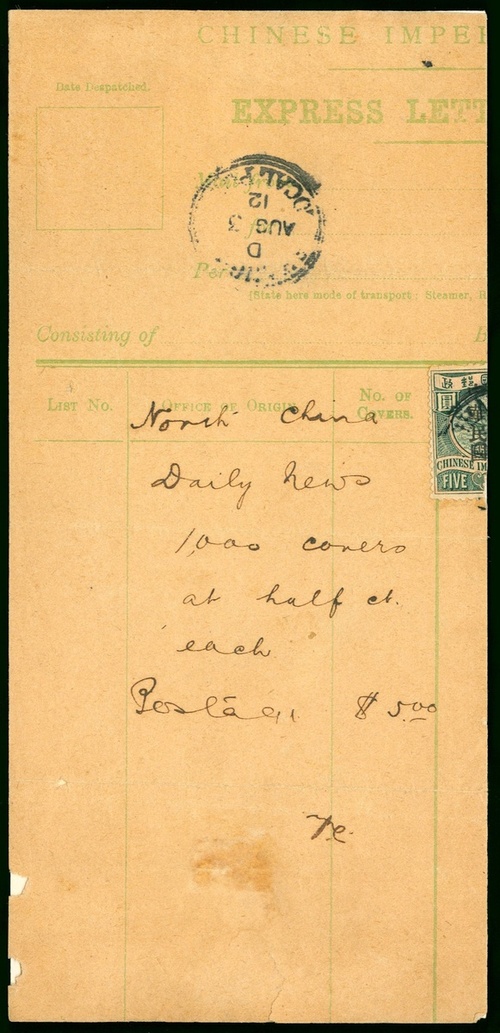 CHINESE IMPE
Date Despatched.
EXPRESS LETT
LOCAL P
12
AUG 3
D
Per
[State here mode of transport : Steamer, R
Consisting of
List No.
Office of Origin
No. of
Covers.
North China
Daily News
1,000 covers
at half ct.
each
Postage $5.00
政
圓
民
國
CHINESE IM
FIVE